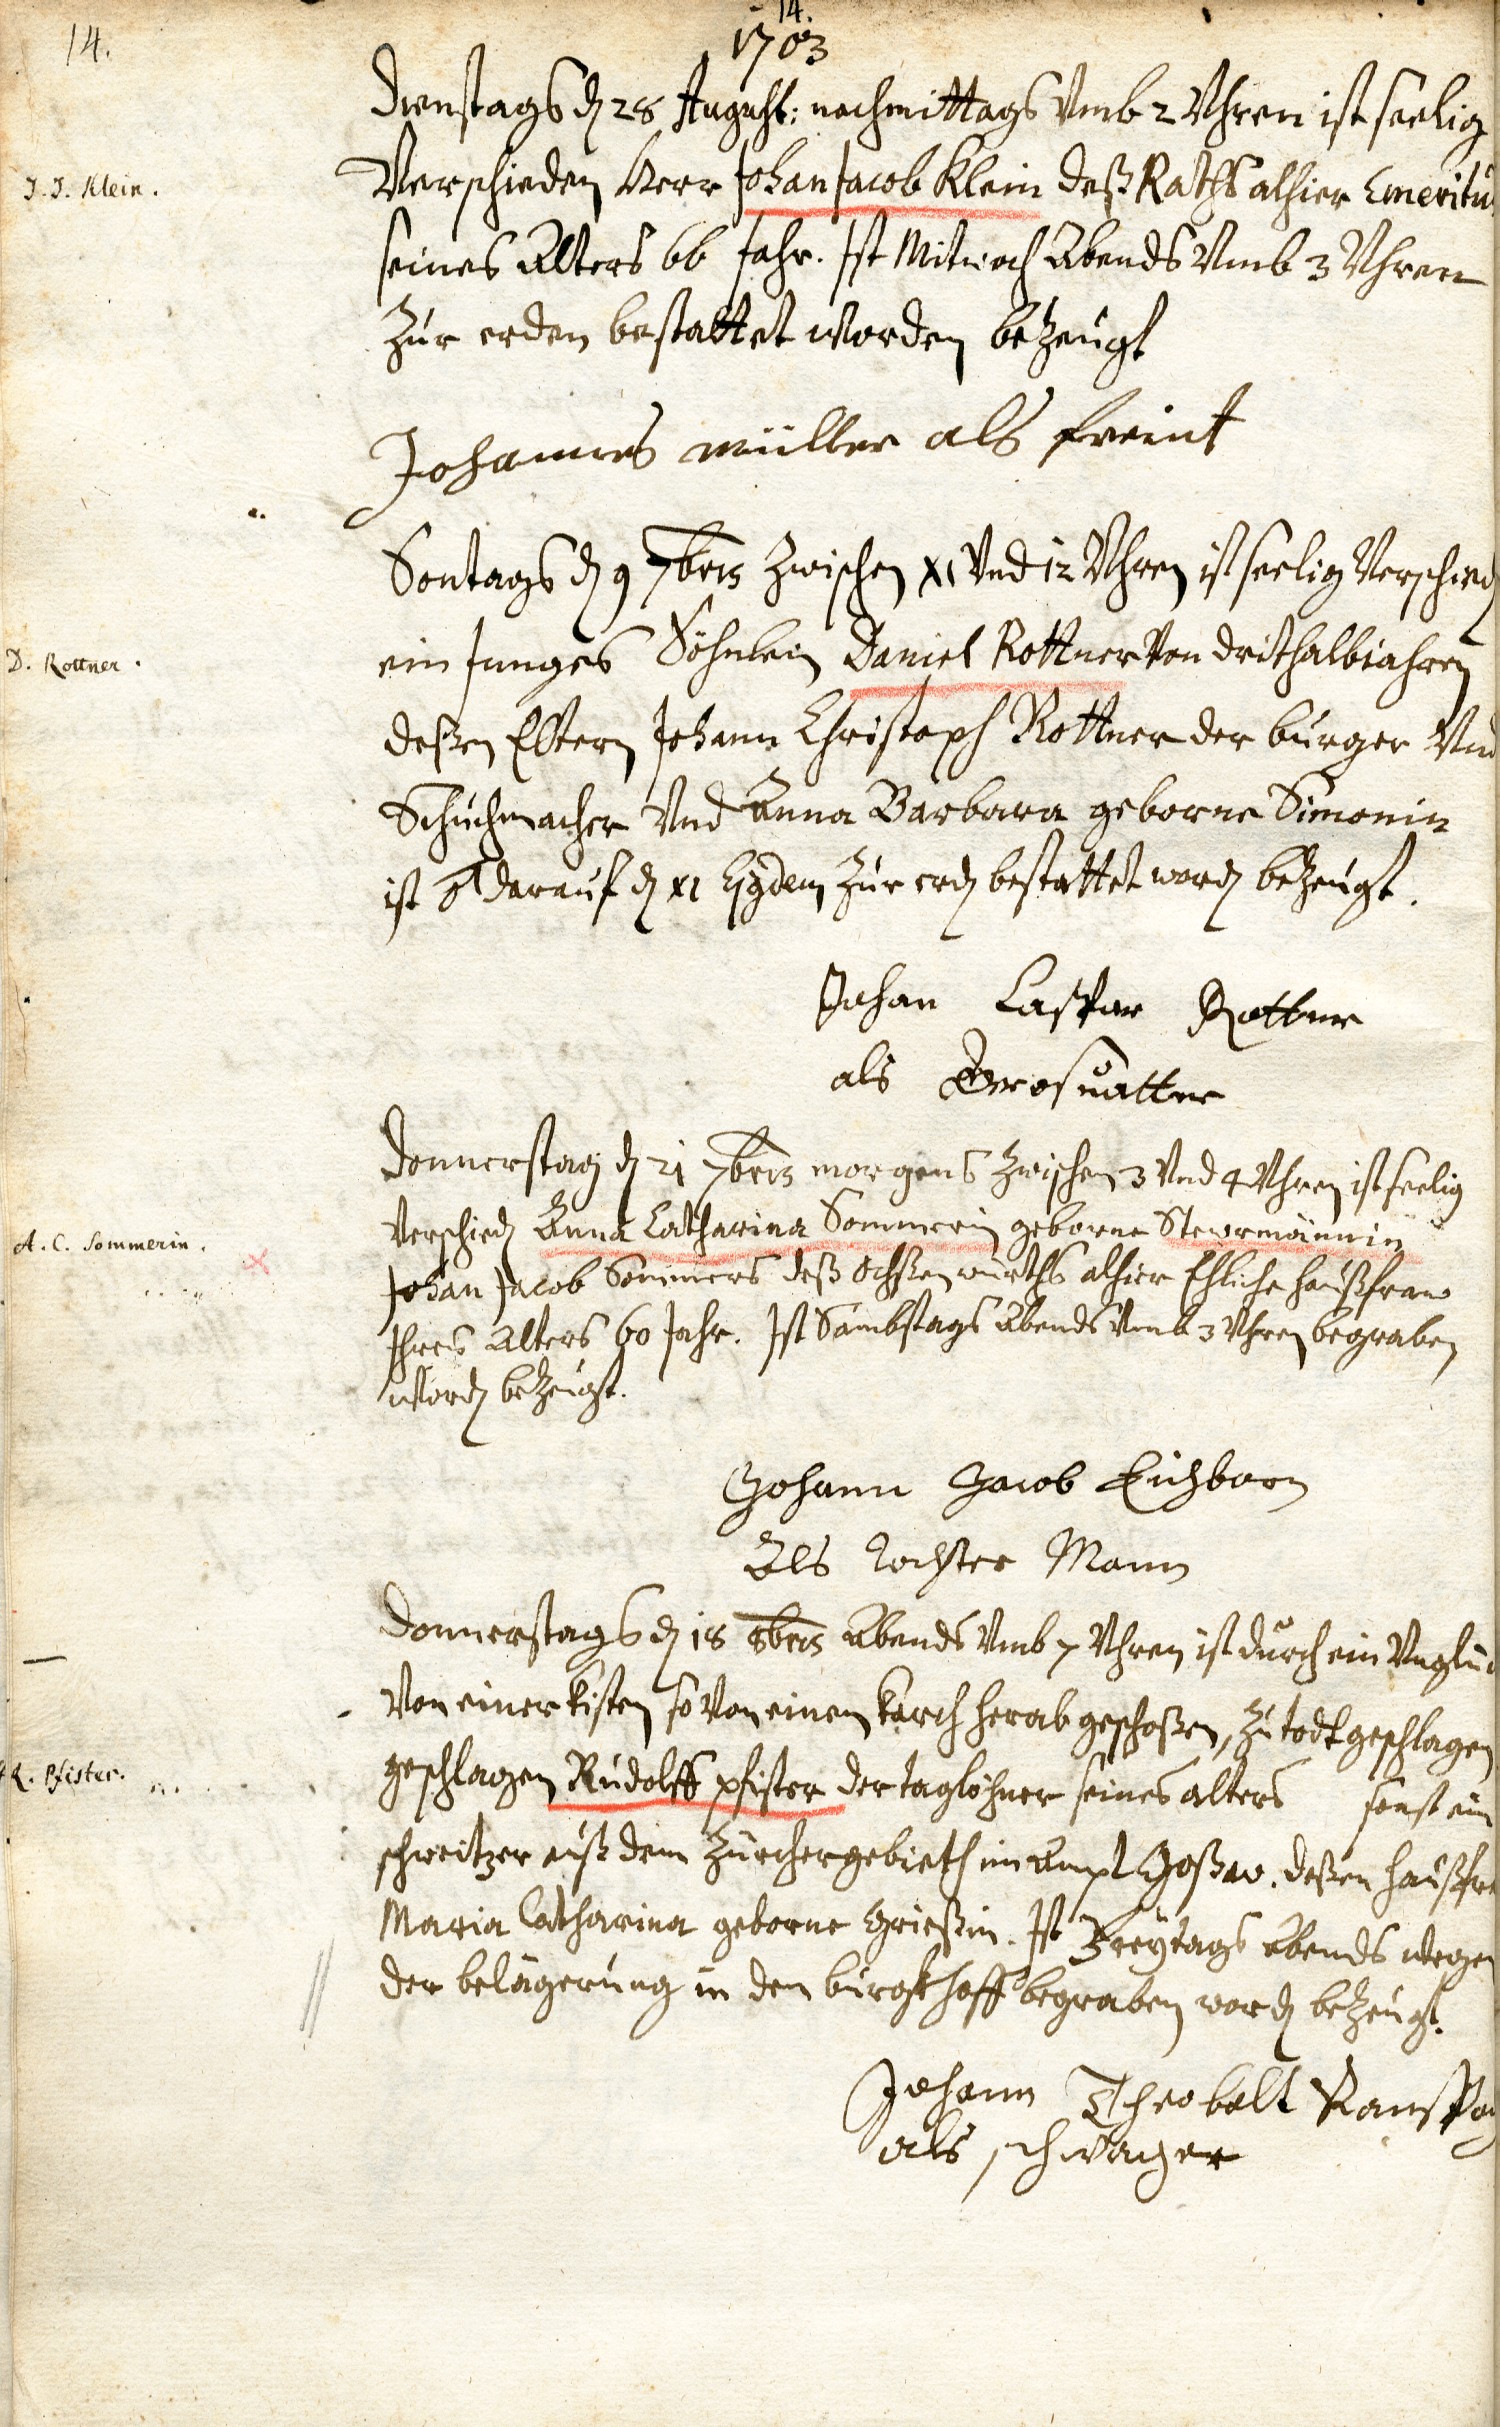 14.
14.
1703
Dienstags dn 28 August: nachmittags Vmb 2 Vhren ist seelig
J. J. Klein.
Verschieden Herr Johan Jacob Klein deß Raths alhier Emeritu
seines Alters 66 Jahr. Ist Mitwoch Abends Vmb 3 Vhren
Zur erden bestattet worden bezeugt
Johannes müller als freint
Sontags dn 9 7bris Zwischen XI Vnd 12 Vhren ist seelig Verschied
D. Rottner.
ein Junges Söhnlein Daniel Rottner Von drithalb jahren
deßen Eltern Johann Christoph Rottner der burger Vnd
Schuchmacher Vnd Anna Barbara geborne Simonin
ist darauf dn XI Ejusdem Zur erdn bestattet wordn bezeugt.
Johan Caspar Rottner
als Grosvatter
Donnerstag dn 21 7bris morgens Zwischen 3 Vnd 4 Vhren ist seelig
A. C. Sommerin.
Verschiedn Anna Catharina Sommerin geborne Steurmännin
Johan Jacob Sommers deß Ochßenwürths alhier Ehliche haußfraw
Ihres Alters 60 Jahr. Ist Sambstags Abends Vmb 3 Vhren begraben
wordn bezeugt.
Johann Jacob Eichborn
Als Tochter Mann
Donnerstags dn 18 8bris Abends Vmb 7 Vhren ist durch ein Vnglü
Von einer kisten so Von einem karch herab geschoßen, Zu todt geschlagen
R. Pfister.
geschlagen Rudolff Pfister der taglöhner seines alters sonst ein
schweitzer auß dem Zürchergebieth im Ampt Goßaw. deßen haußfr
Maria Catharina geborne Grießin. Ist Freÿtags Abends wegen
der belägerung in den burgkhoff begraben wordn bezeugt.
Johann Theobalt
als schwager